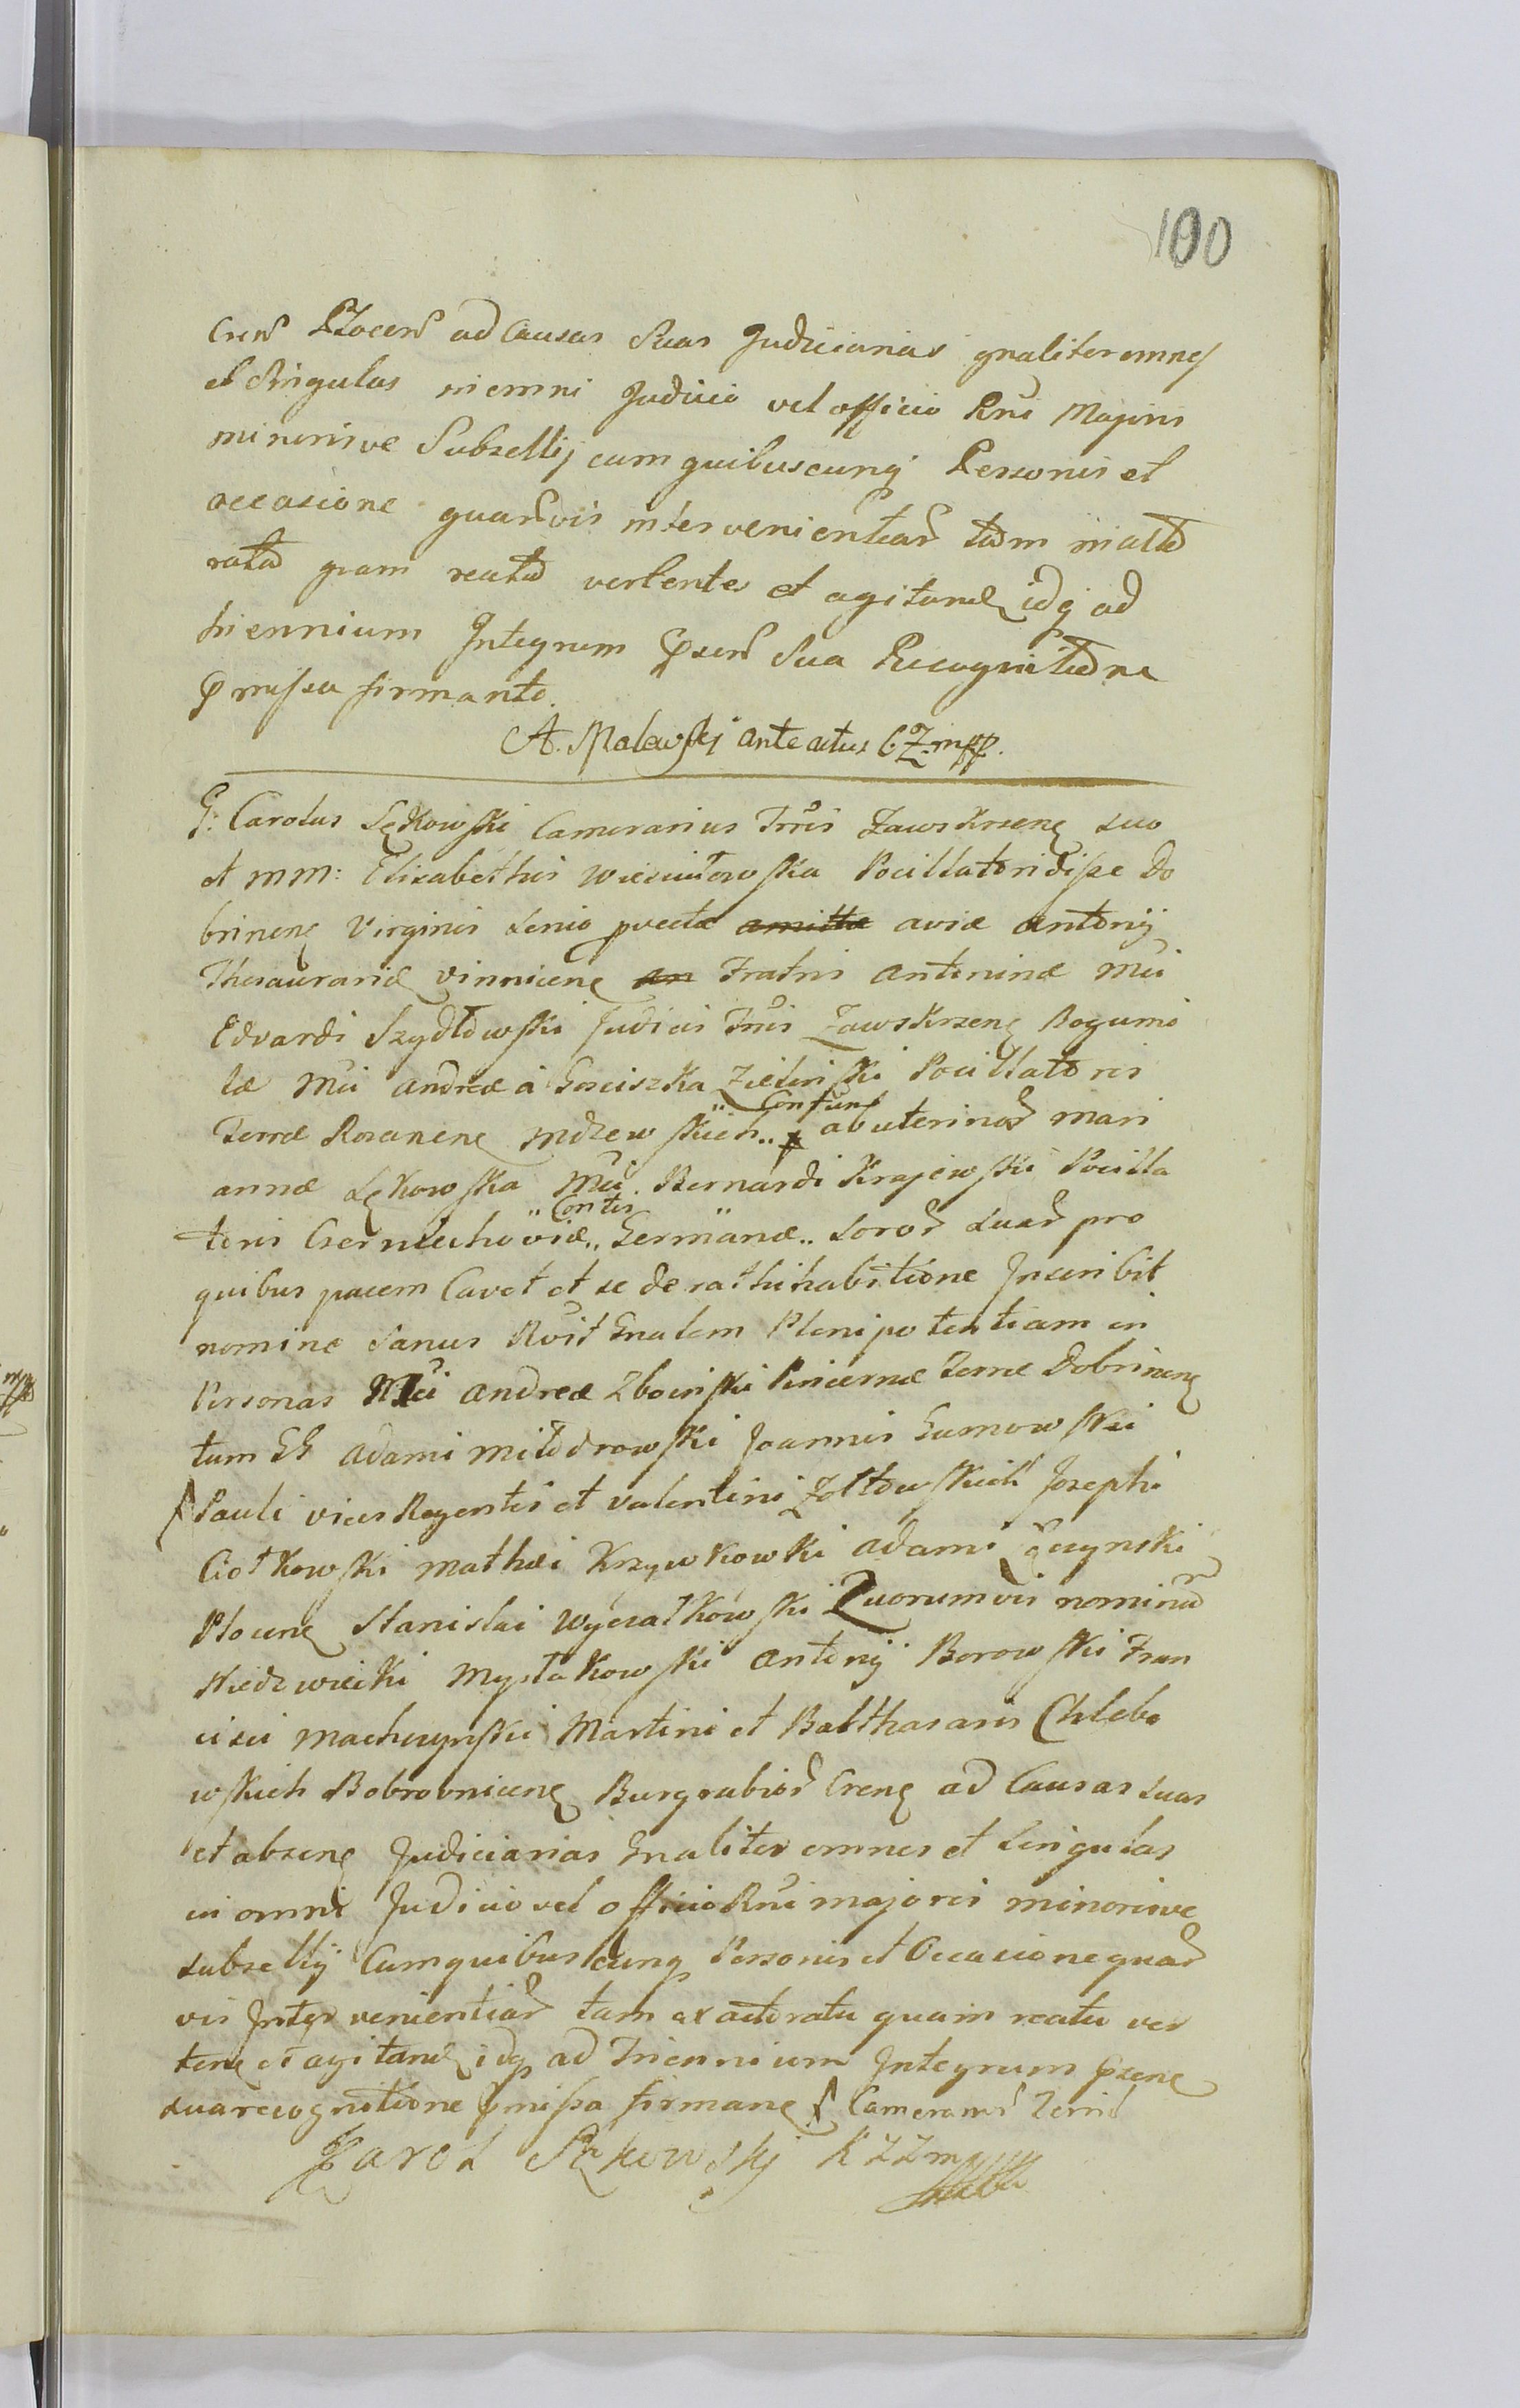 100
Cren Plocen ad Causas Suas Judicianias gnaliter omnes
et Singulas in omni Judicio vel officio Rni Majoris
minorisve Subsellij cum quibuscunq Personis et
occasione quarvis intervenientear tam in acto
ratu quam reatu vertentes et agitand idq ad
triennium Integrum Pnsen Sua Recognitione
Pmissa firmante.
A. Malewskj ante actus C.Z. mpp.
G: Carolus Lękowski Camerarius Trris Zawskrzens suo
et MM: Elisabethis Wiesiułowska Pocillatoridisse Do
brinens Virginis Senio preetæ amittæ aviæ Antonij
Thesaurariæ vinnicens an Fratris Antoninæ Mci
Edvardi Szydłowski Judicis Trris Zawskrzens Bogumi
læ Mci Andreæ à Gosciszka Zielinski Pocillatoris
Terræ Rozanens Mdzewskich ..
Contun
ab uterinar Mari
annæ Lękowska Mci Bernardi Krajewski Pocilla
toris Czerniechoviæ ..
Contis
Germanæ .. Soror Suar pro
quibus pacem Cavet et se de rathihabitione Inscribit
nomine Sanus Rvit Gnalem Plenipotentiam in
Personas Mci Andreæ Zboinski Pincernæ Terræ Dobrinens
tum GG Adami Miłodrowski Joannis Gumowski
Pauli vices Regentis et Valentini Zołtowskich Josephi
Ciołkowski Mathæi Krzywkowki Adami Łączynski
Plocens Stanislai Wyczałkowski Quorumvis nominum
Niedzwiecki Mystakowski Antonij Borowski Fran
cisci Machczynski Martini et Balthasaris Chlebo
wskich Bobrovnicens Burgrabior Crens ad Causas Suas
et absens Judiciarias Gnaliter omnes et Singulas
in omni Judicio vel officio Rni majoris minorisve
Subsellij Cum quibuscunq Personis et Occasione quar
vis Intervenientiar tam ex actoratu quam reatu ver
tens et agitand idq ad Triennium Integrum Psens
Sua recognitione Pmissa firmans Camerarius Terris
Karol Lękowskj K Z Z mp